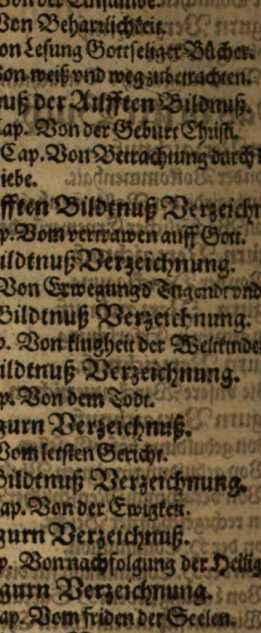 Von der Einsambe.
Von Beharlichkeit.
on Lesung Gottseliger Bücher.
on weiß vnd weg zubetrachten.
nuß der Ailfften Bildnuß.
ap. Von der Geburt Christi.
Cap. Von Betrachtung durch
iebe.
fften Bildtnuß Verzeich
p. Vom vertrawen auff Gott.
ildtnuß Verzeichnung.
Von Erwegung d Tugendt vnd
Bildtnuß Verzeichnung.
p. Von klugheit der Weltkinde
ildtnuß Verzeichnung.
p. Von dem Todt.
gurn Verzeichnuß.
Vom letsten Gericht.
Bildtnuß Verzeichnung.
ap. Von der Ewigkeit.
gurn Verzeichnuß.
p. Von nachfolgung der Heilig
gurn Verzeichnung.
ap. Vom friden der Seelen.